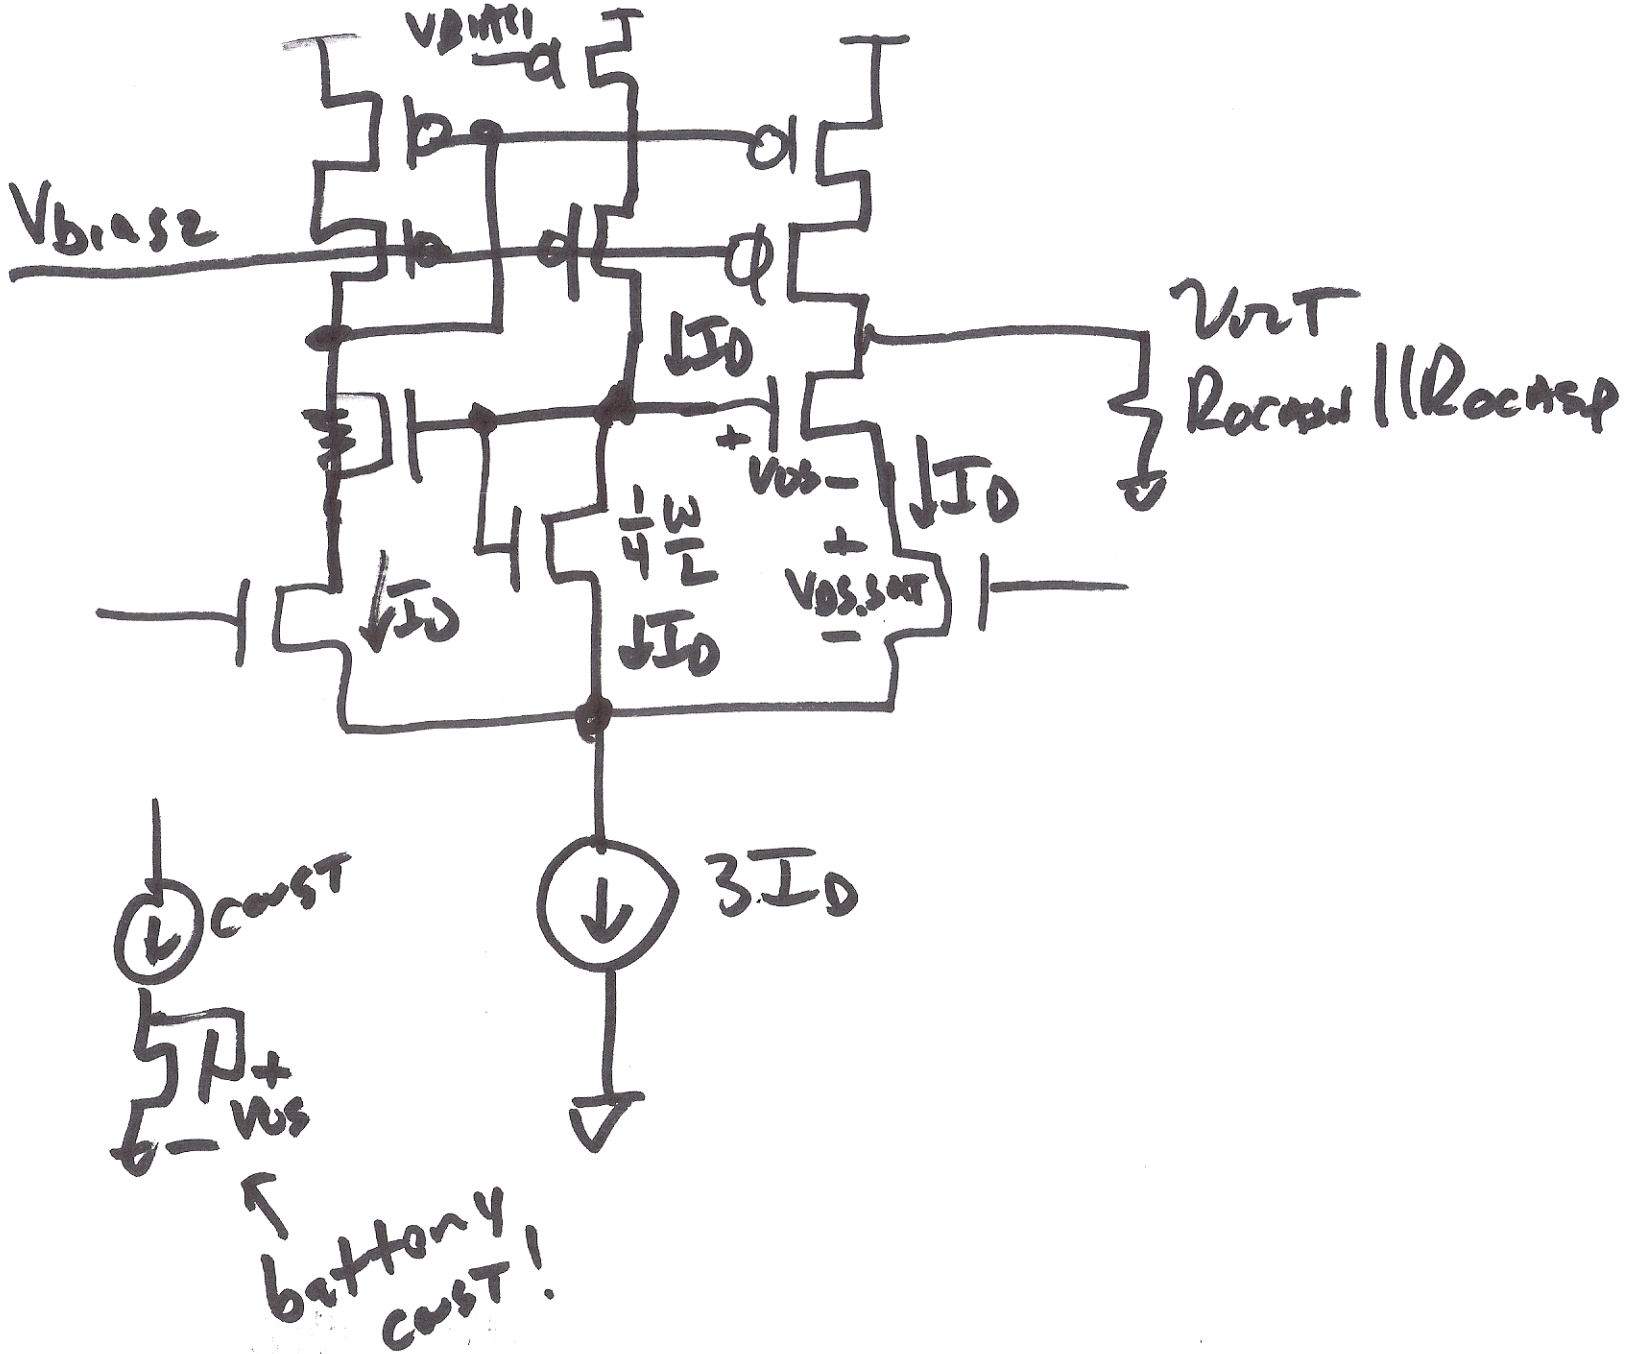 VBIAS1
Vbias2
↓ID
VOUT
ROCASN||ROCASP
+
VGS-
↓ID
1/4 W/L
+
VDS,SAT
-
↓ID
↓ID
3.ID
const
+
VGS
-
battery
const!